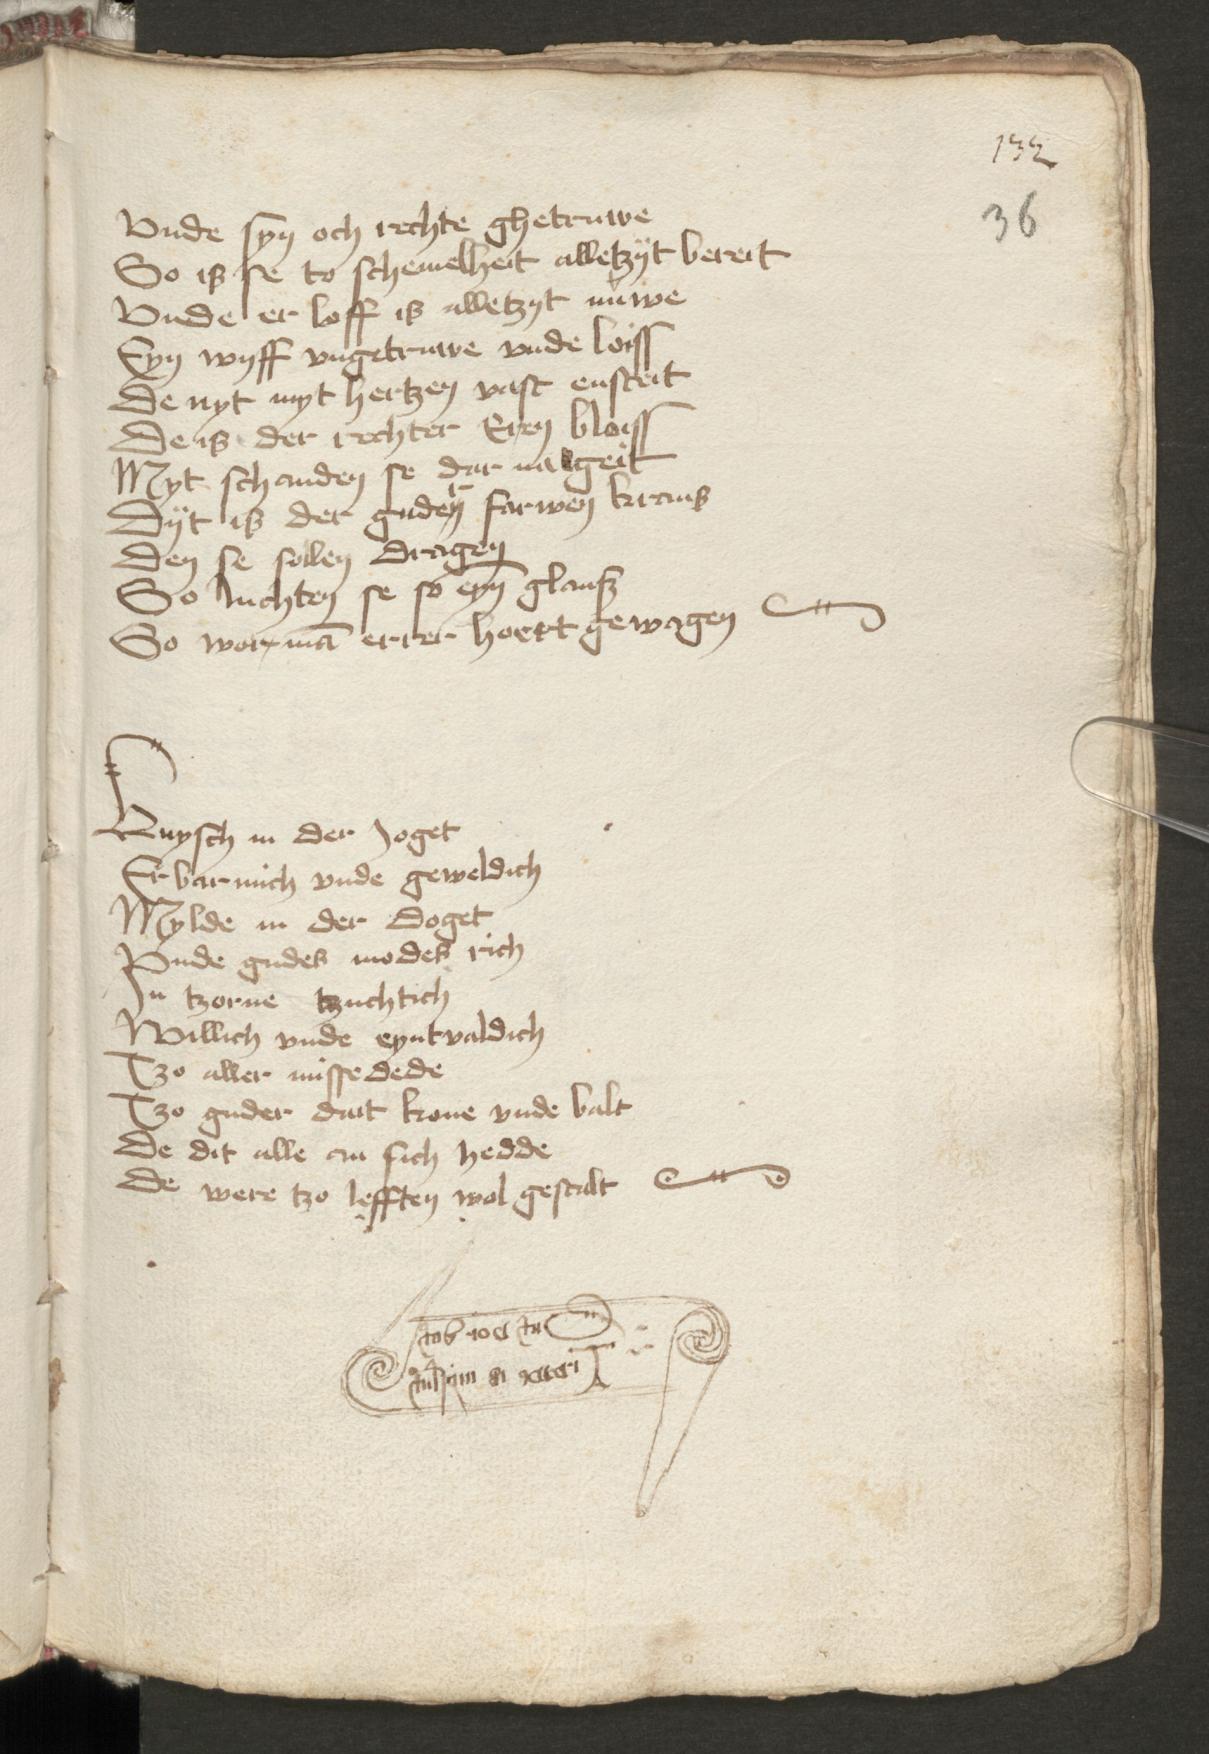 132
36
Vnde syn och rechte ghetruwe
So is se to schemelheit alletzÿt bereit
Vnde er loff is alletzyt nuwe
Eyn wyff vngetruwe vnde loiss
De nyt myt hertzen vast ensteit
De is der rechter Eren bloiss
Myt schanden se dar na geit
Dÿt is der guden farwen krans
Den se sollen dragen
So luchten se so eyn glansz
So wor man errer hoert gewagen
Kuysch in der Joget
Erbarmich vnde geweldich
Mylde in der doget
Vnde gudes modes rich
In tzorne tzuchtich
Willich vnde eyntvaldich
Tzo aller missedede
Tzo guder dait kone vnde balt
De dit alle an sich hedde
De were tzo lefften wol gestalt